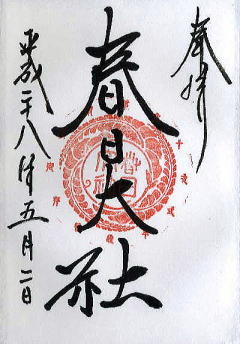 奉拝
春日大社
平成二十八年五月二日